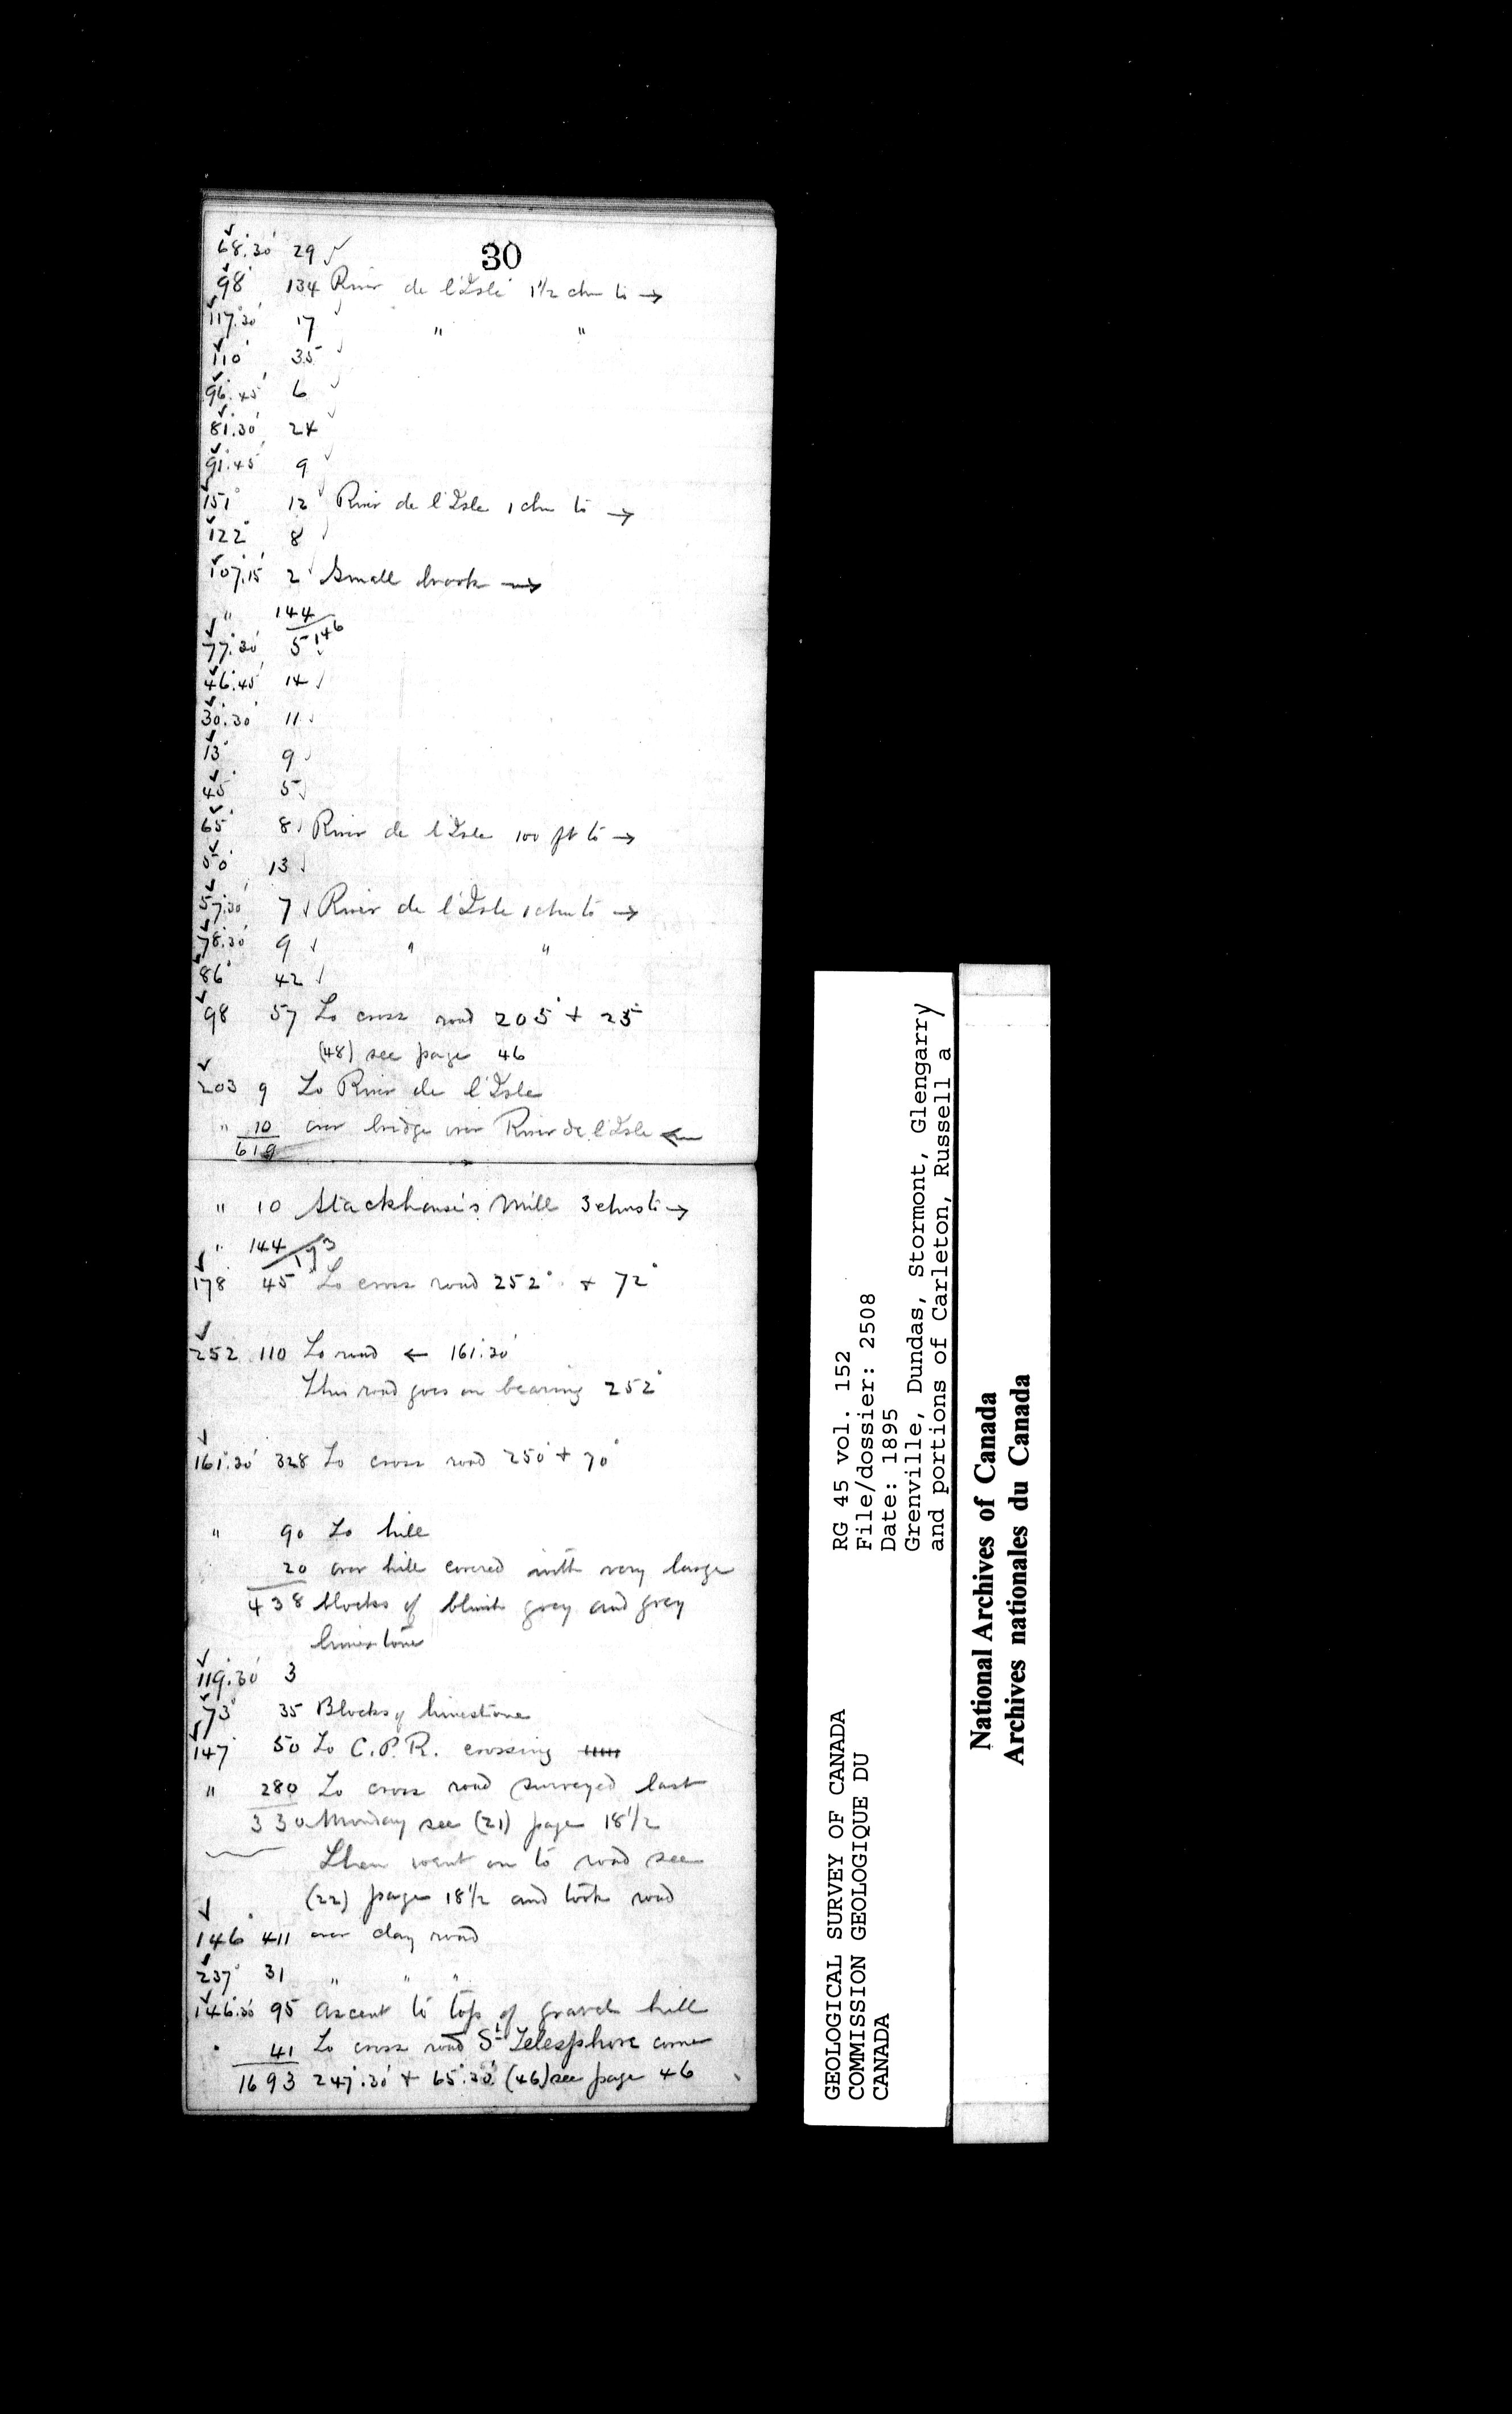 30
68°.30' 29 ✓
98° 134 River de l'Isle 1 1/2 chn to →
117°.30' 17 ✓ " "
110° 35 ✓
96°.45' 6 ✓
81°.30' 24 ✓
91°.45' 9 ✓
151° 12 ✓ River de l'Isle 1 chn to →
122° 8 ✓
107°.15' 2 ✓ Small brook →
" 144
146
77°.30' 5 ✓
46°.45' 14 ✓
30°.30' 11 ✓
13° 9 ✓
45° 5 ✓
65° 8 ✓ River de l'Isle 100 ft to →
50° 13 ✓
57°.30' 7 ✓ River de l'Isle 1 chn to →
78°.30' 9 ✓ " "
86° 42 ✓
98 57 To cross road 205° + 25°
(48) see page 46
203 9 To River de l'Isle
" 10 over bridge over River de l'Isle ←
619
" 10 Stackhouse's Mill 3 chns to →
" 144
193
178 45 To cross road 252° + 72°
252 110 To road ← 161°.30'
This road goes on bearing 252°
161°.30' 328 To cross road 250° + 70°
" 90 To hill
20 over hill covered with very large
438 blocks of bluish grey and grey
limestone
119°.30' 3
73° 35 Blocks of limestone
147° 50 To C.P.R. crossing
" 280 To cross road surveyed last
330 Monday see (21) page 18 1/2
Then went on to road see
(22) page 18 1/2 and took road
146° 411 over clay road
237° 31 " " "
146°.30' 95 ascent to top of gravel hill
" 41 To cross road St Telesphore corner
1693 247°.30' + 65°.30' (46) see page 46
GEOLOGICAL SURVEY OF CANADA
COMMISSION GEOLOGIQUE DU
CANADA
RG 45 vol. 152
File/dossier: 2508
Date: 1895
Grenville, Dundas, Stormont, Glengarry
and portions of Carleton, Russell a
National Archives of Canada
Archives nationales du Canada